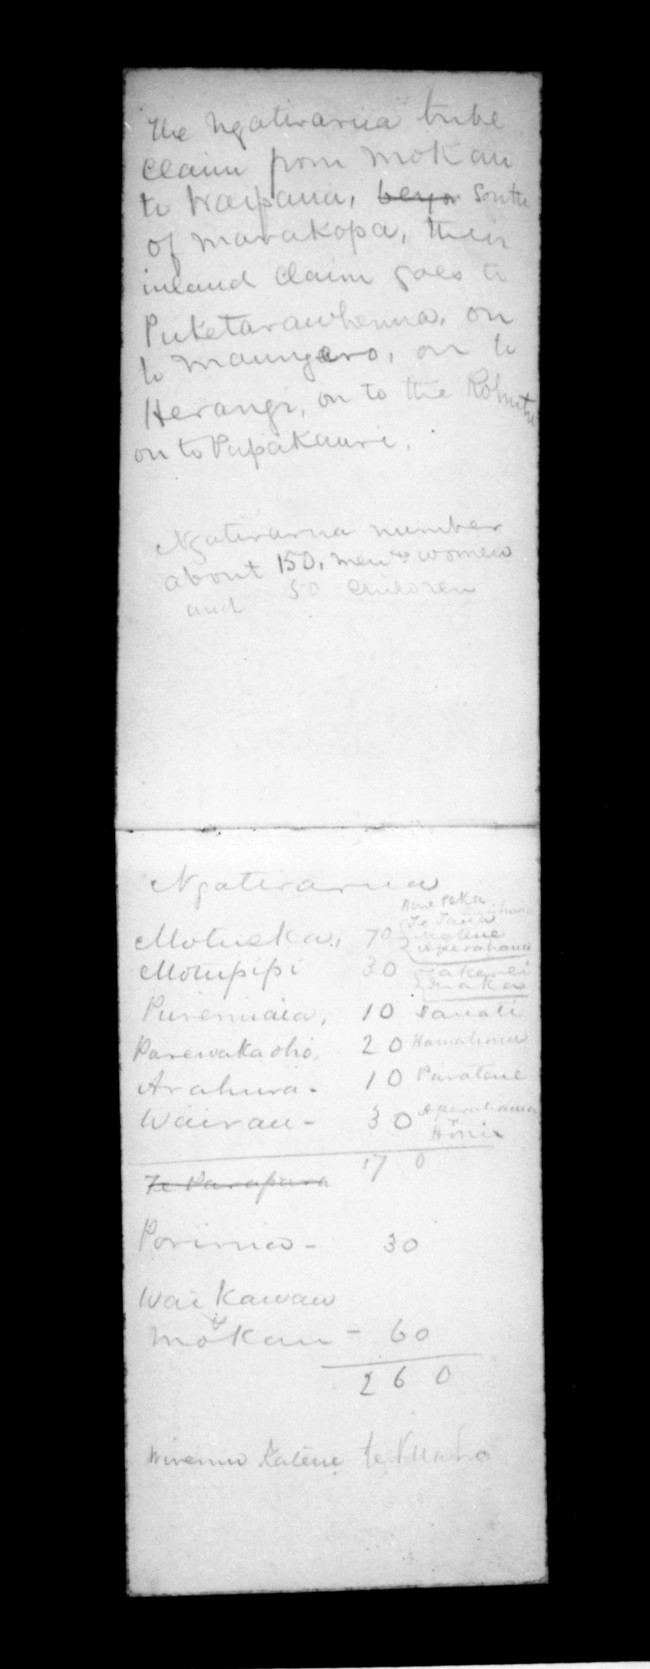 The Ngatirarua tribe
claim from Mokau
to Waipaua, beyo South
of Marakopa, their
inland claim goes to
Puketarawhenua, on
to Maungaro, on to
Herangi, on to the
on to Papakauri.
Ngatirarua number
about 150, men & women
and 50 children
Ngatirarua
Hone Peka
Te Tana
Motueka, 70 Matene
Aperahama
Motupipi 30 Takerei
Inaka
Puremaia, 10
Parewakaoho, 20 Hamahona
Arahura - 10 Paratene
Wairau - 30 Aperahama
&
Honia
170
Te Parapara
Porirua - 30
Wai Kawau
&
Mokau - 60
260
Wiremu Katene te